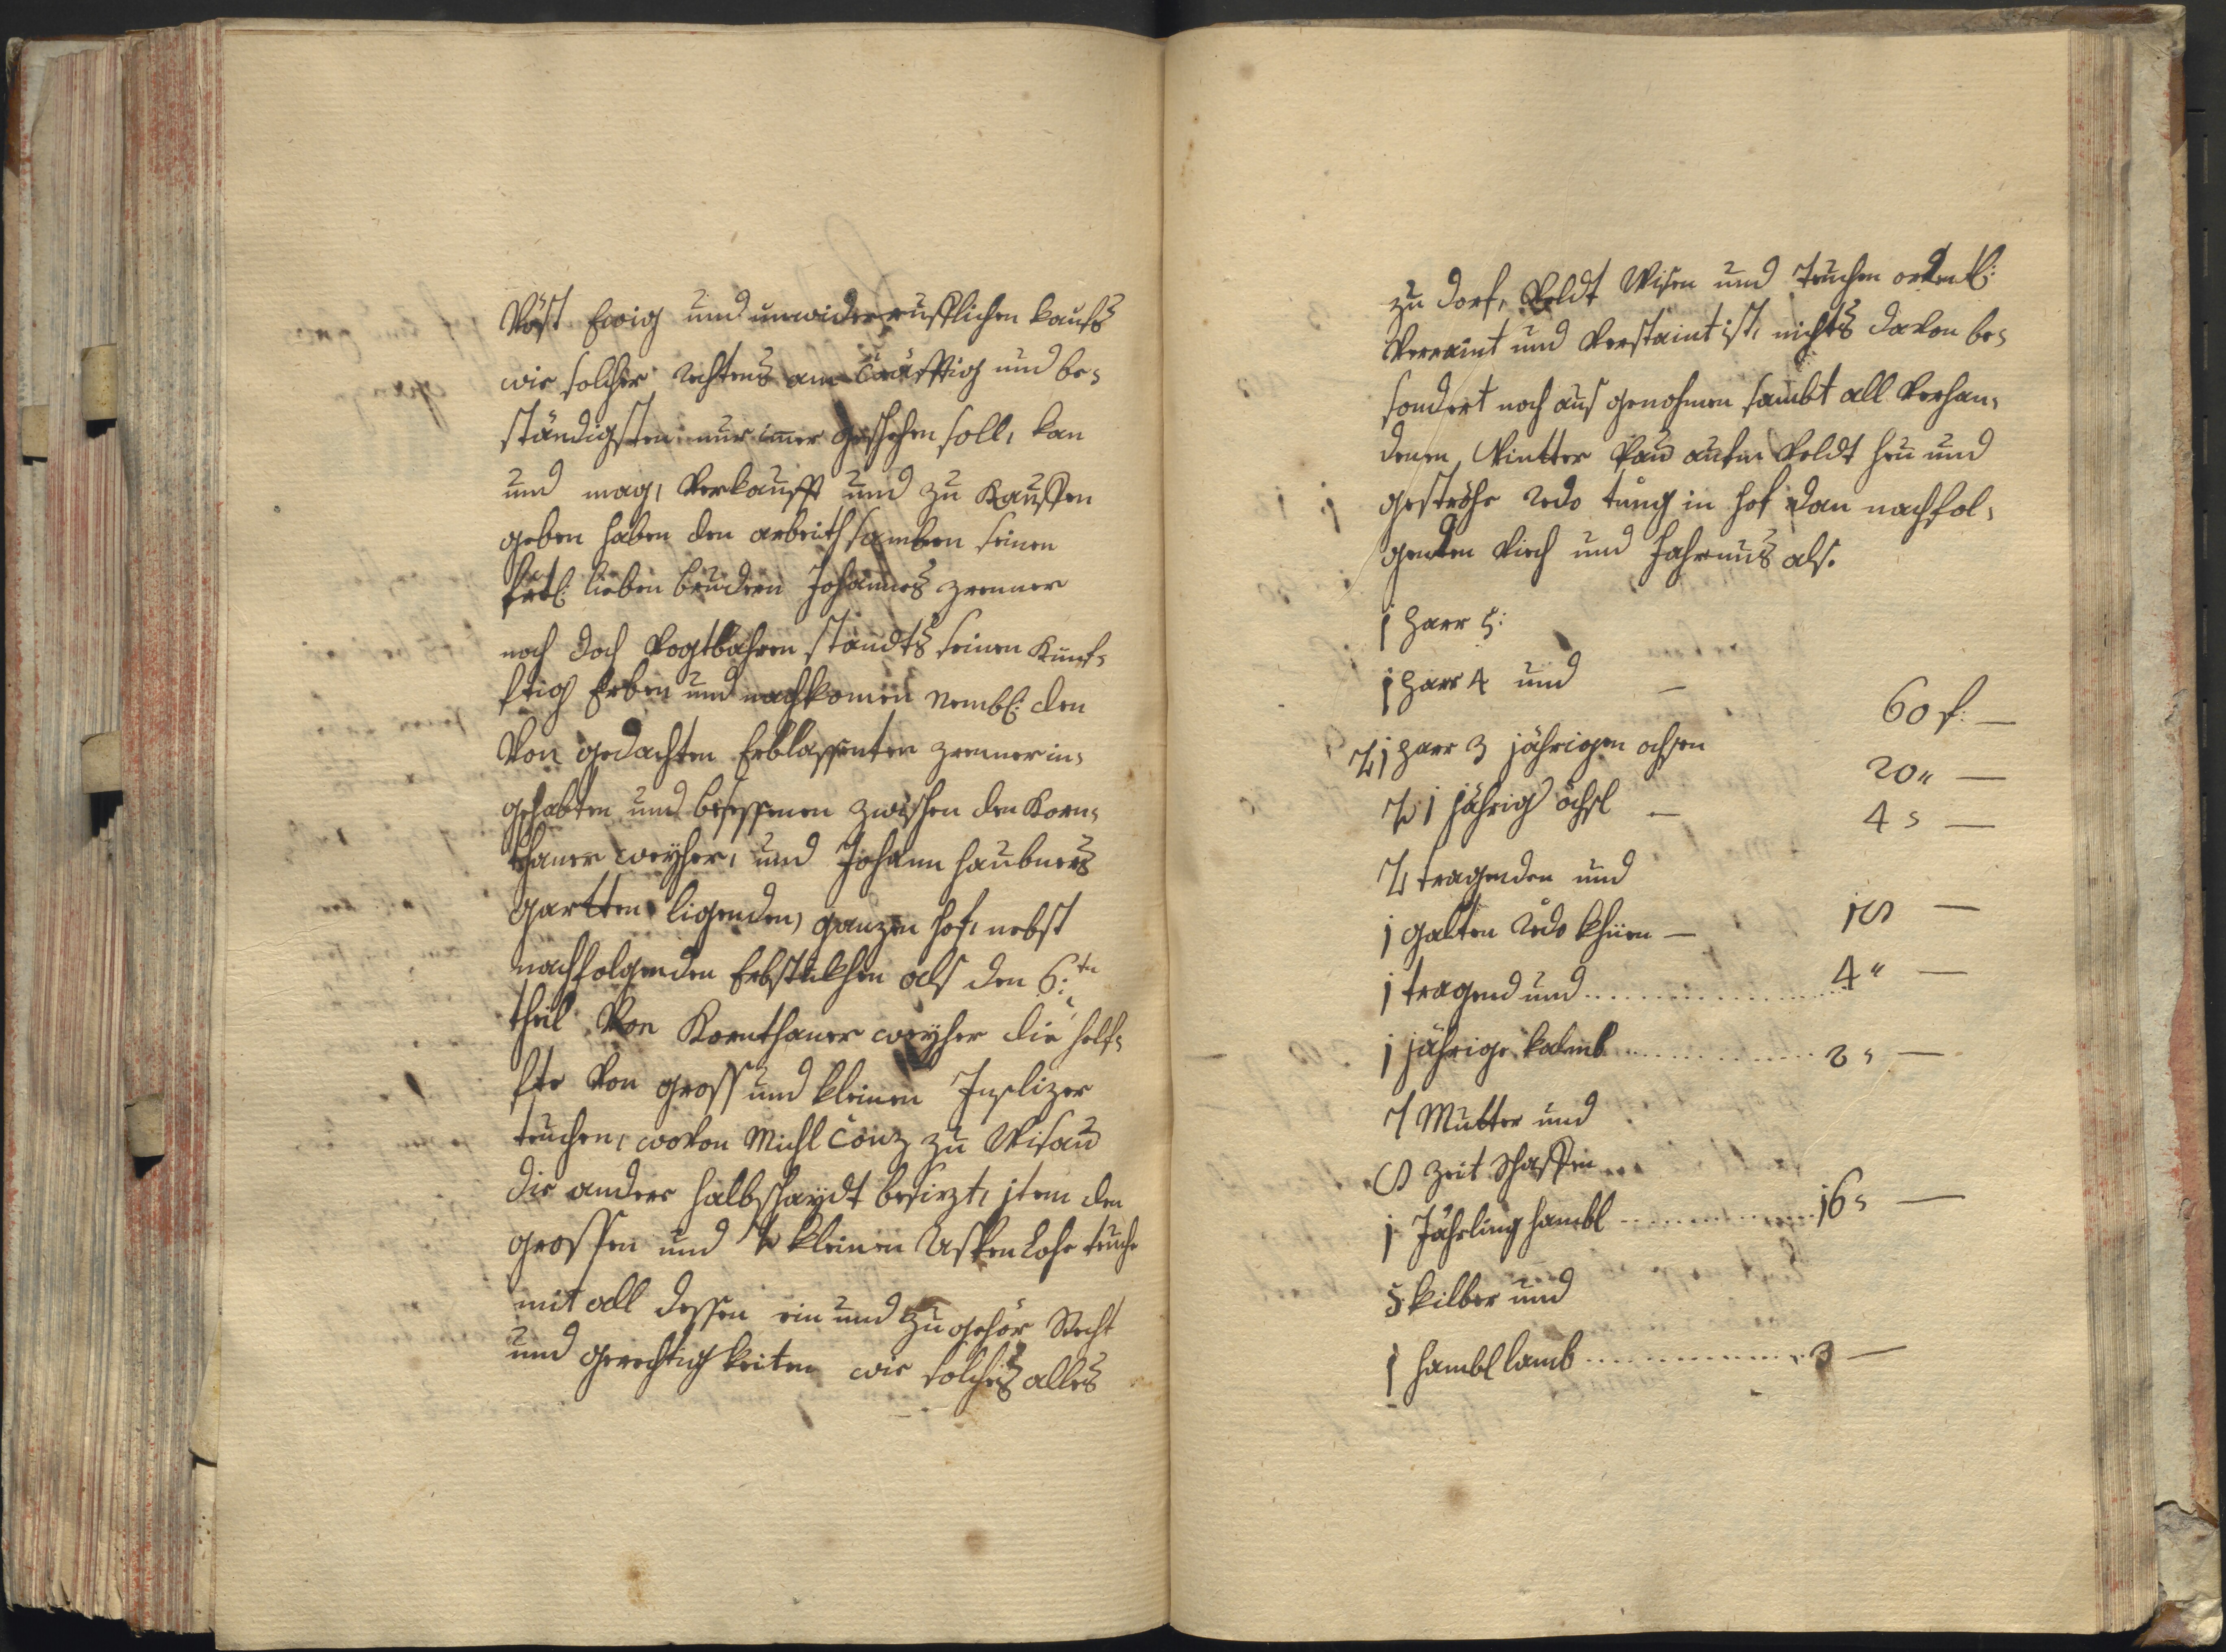 Vöst Ewig und unwiderrufflichen kaufs
wie solcher rechtens am Cräfftig und be-
ständigsten nur imer geschehen soll, kan
und mag, Verkaufft und zu Kauffen
geben haben den arbeithsamben seinen
frtl: lieben brudern Johannes Zrenner
noch doch Vogtbahren standts seinen Kunf-
ftig Erben und nachkomen Nembl: den
Von gedachten Erblassenter Zrenner in-
gehabten und besessenen zwischen den Korn-
thaner weyher, und Johann Haubners
gartten ligenden, ganzen hof, nebst
nachfolgenden Erbstukhen als den 6:tn
theil Von Kornthaner weyher die helf-
fte Von gross und kleinen
teuchen, woVon Michl Conz zu Wisau
die andere halbschaydt besizt, jtem den
grossen und kleinen Lohe teuch
mit all dessen ein und Zugehör Recht
und gerechtigkeiten wie solches alles
zu dorf, Veldt Wisen und teuchen ordentl:
Verraint und Verstaint ist, nichts daVon be-
sondert noch aus genohmen sambt all Verhan-
denen Wintter Pau aufm Veldt heu und
geströhe redo tung in hof dan nachfol-
genden Viech und Fahrnus als.
1 Paar 5:
1 Paar 4 und — 60 f: —
1 Paar 3 jährigen ochsen 20 " —
1 jährig öchsl — 4 " —
2 tragenden und
1 galten redo khüen — 18 —
1 tragend und 4 " —
1 jährige kalmb 2 " —
7 Mutter und
8 Zeit schaffen
1 Jährling hambl 16 " —
5 kilber und
1 hambl lamb 3 —